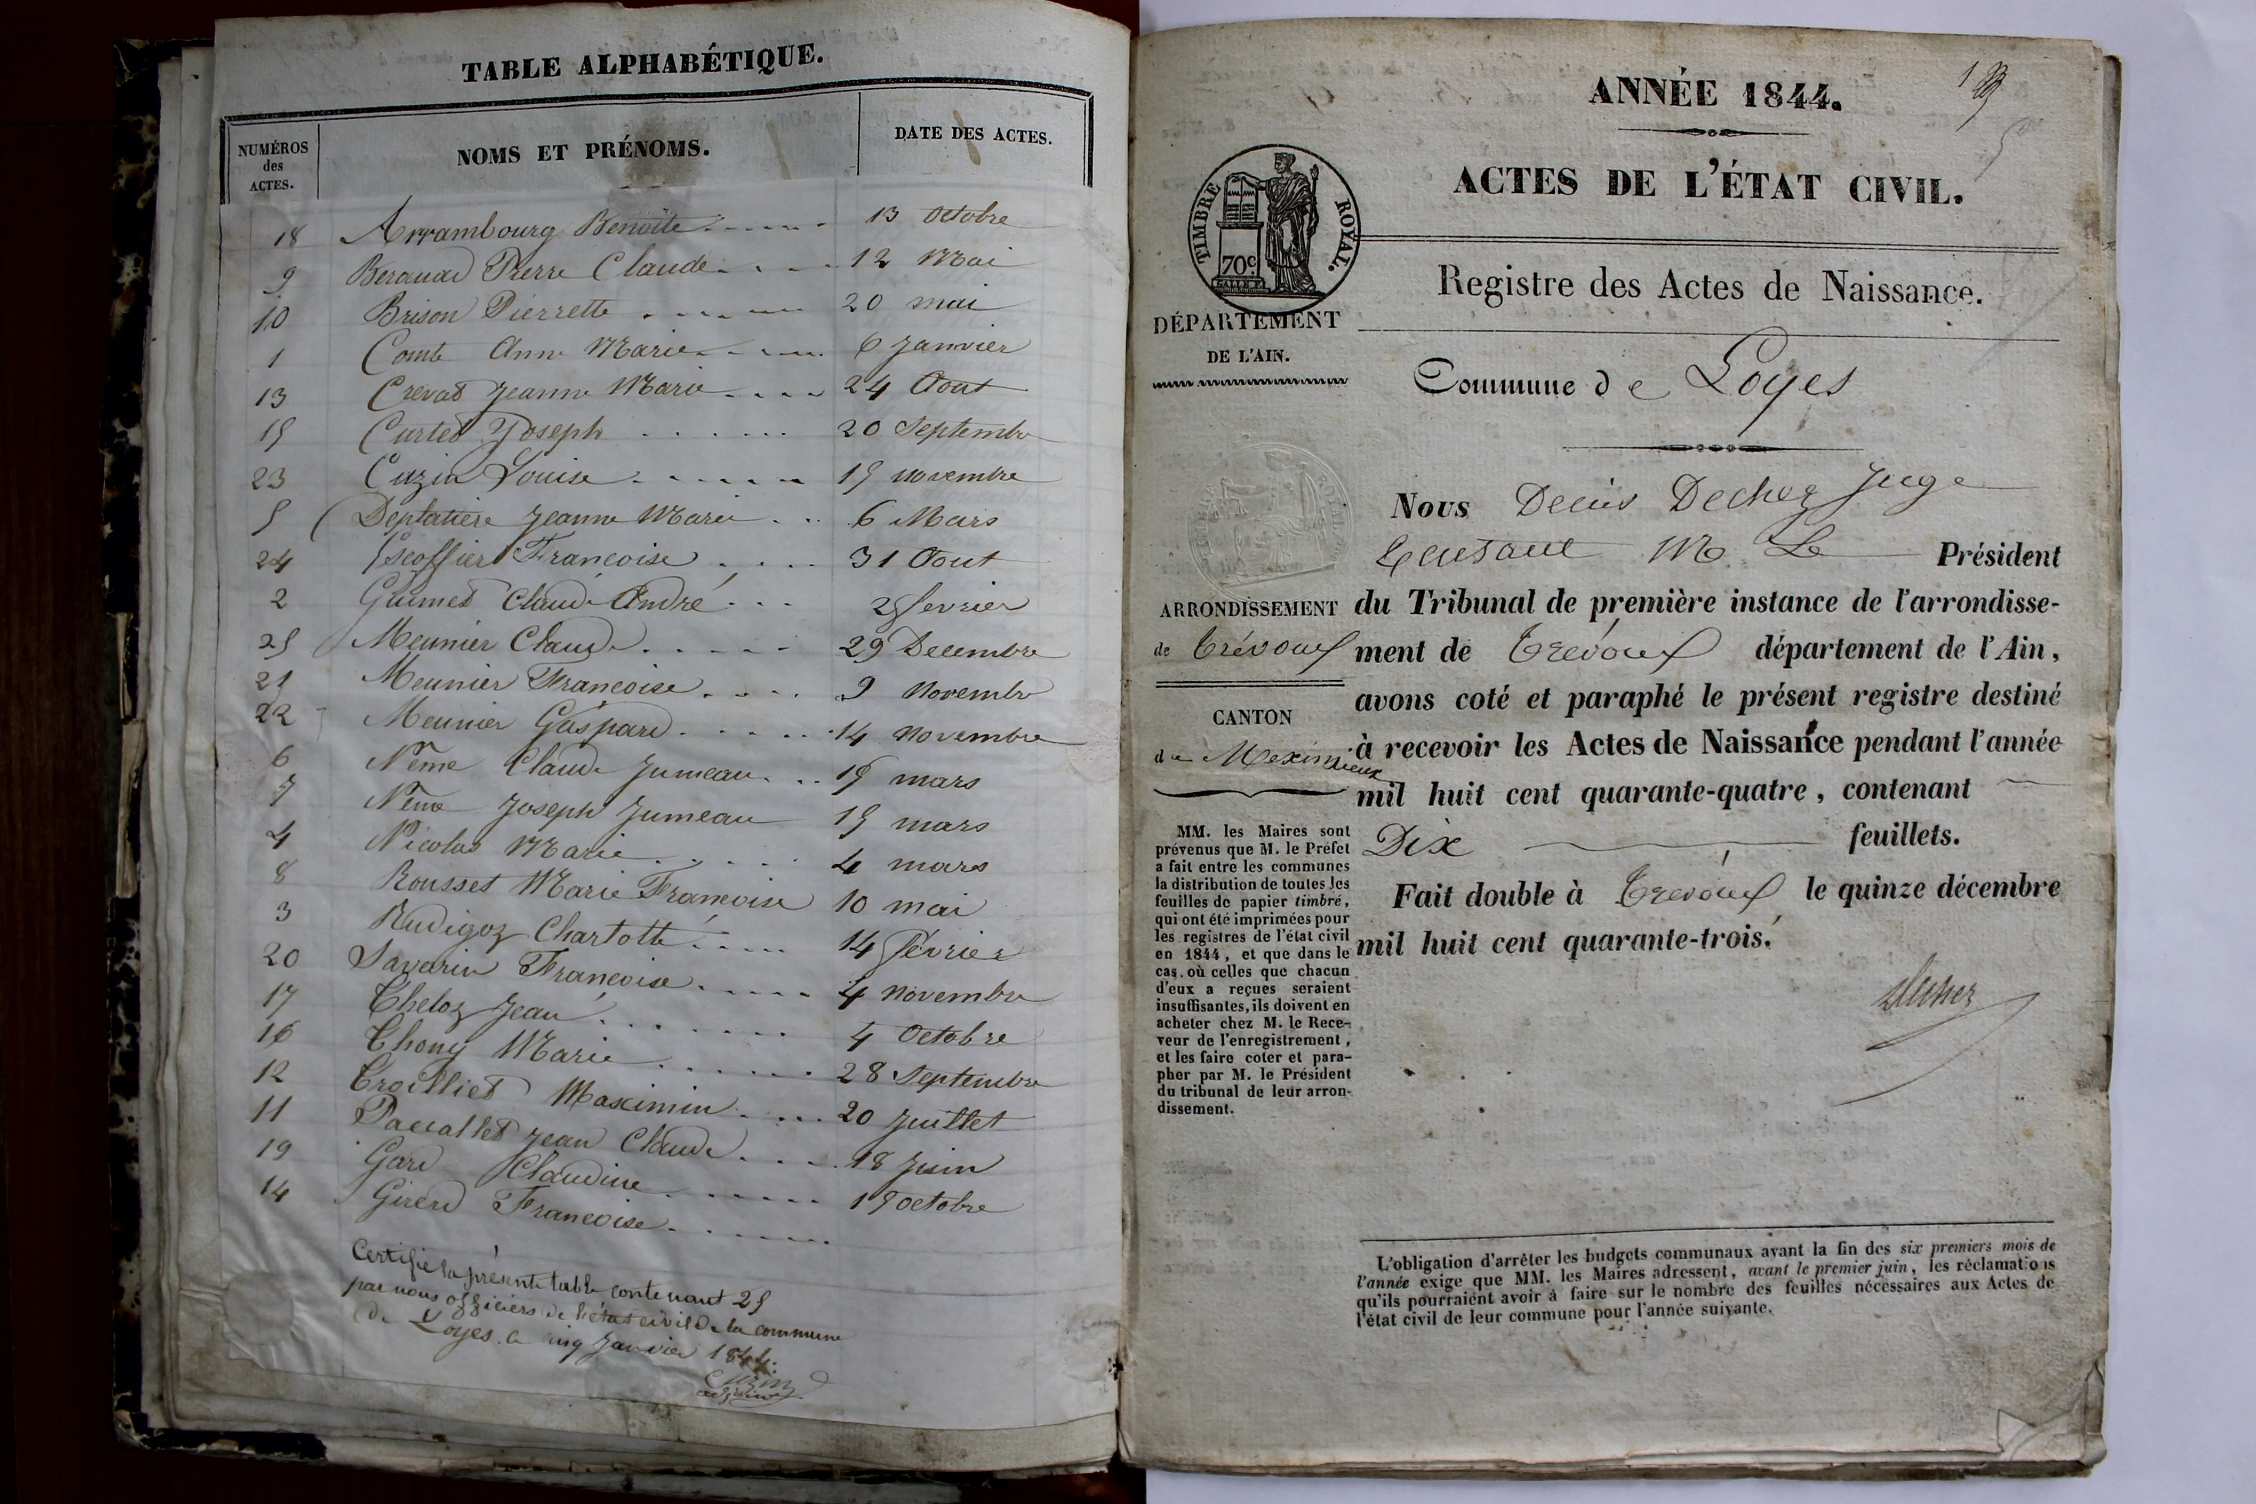 TABLE ALPHABÉTIQUE.
NUMÉROS des ACTES. NOMS ET PRÉNOMS. DATE DES ACTES.
18 Arrambourg Benoîte 13 Octobre
9 Beraud Pierre Claude 12 Mai
10 Brison Pierrette 20 mai
1 Comte Anne Marie 6 Janvier
13 Crevat Jeanne Marie 24 Aout
15 Curtet Joseph 20 Septembre
23 Cuzin Louise 15 novembre
5 Deplatière Jeanne Marie 6 Mars
24 Escoffier Francoise 31 Aout
2 Guimet Claude André 25 fevrier
25 Meunier Claude 29 Decembre
21 Meunier Françoise 9 Novembre
22 Meunier Gaspard 14 Novembre
6 Nême Claude Jumeau 15 mars
7 Nême Joseph Jumeau 15 mars
4 Nicolas Marie 4 mars
8 Rousset Marie Francoise 10 mai
3 Rudigoz Charlotte 14 Février
20 Savarin Françoise 4 Novembre
17 Theloz Jean 4 Octobre
16 Thony Marie 28 Septembre
12 Troilliet Maximin 20 Juillet
11 Jean Claude 18 Juin
19 Gard Claudine 15 Octobre
14 Girerd Francoise
Certifié la présente table contenant 25
par nous officiers de l'état civil de la commune
de Loyes le cinq Janvier 1844.
ANNÉE 1844.
ACTES DE L'ÉTAT CIVIL.
TIMBRE ROYAL.
70c
Registre des Actes de Naissance.
DÉPARTEMENT
DE L'AIN.
Commune de Loyes
Nous Decher Juge
M. Le Président
du Tribunal de première instance de l'arrondisse-
ment de Trévoux département de l'Ain,
avons coté et paraphé le présent registre destiné
à recevoir les Actes de Naissance pendant l'année
mil huit cent quarante-quatre, contenant
Dix feuillets.
Fait double à Trévoux le quinze décembre
mil huit cent quarante-trois.
Decher
ARRONDISSEMENT
de Trévoux
CANTON
de Meximieux
MM. les Maires sont
prévenus que M. le Préfet
a fait entre les communes
la distribution de toutes les
feuilles de papier timbré,
qui ont été imprimées pour
les registres de l'état civil
en 1844, et que dans le
cas où celles que chacun
d'eux a reçues seraient
insuffisantes, ils doivent en
acheter chez M. le Rece-
veur de l'enregistrement,
et les faire coter et para-
pher par M. le Président
du tribunal de leur arron-
dissement.
L'obligation d'arrêter les budgets communaux avant la fin des six premiers mois de
l'année exige que MM. les Maires adressent, avant le premier juin, les réclamations
qu'ils pourraient avoir à faire sur le nombre des feuilles nécessaires aux Actes de
l'état civil de leur commune pour l'année suivante.